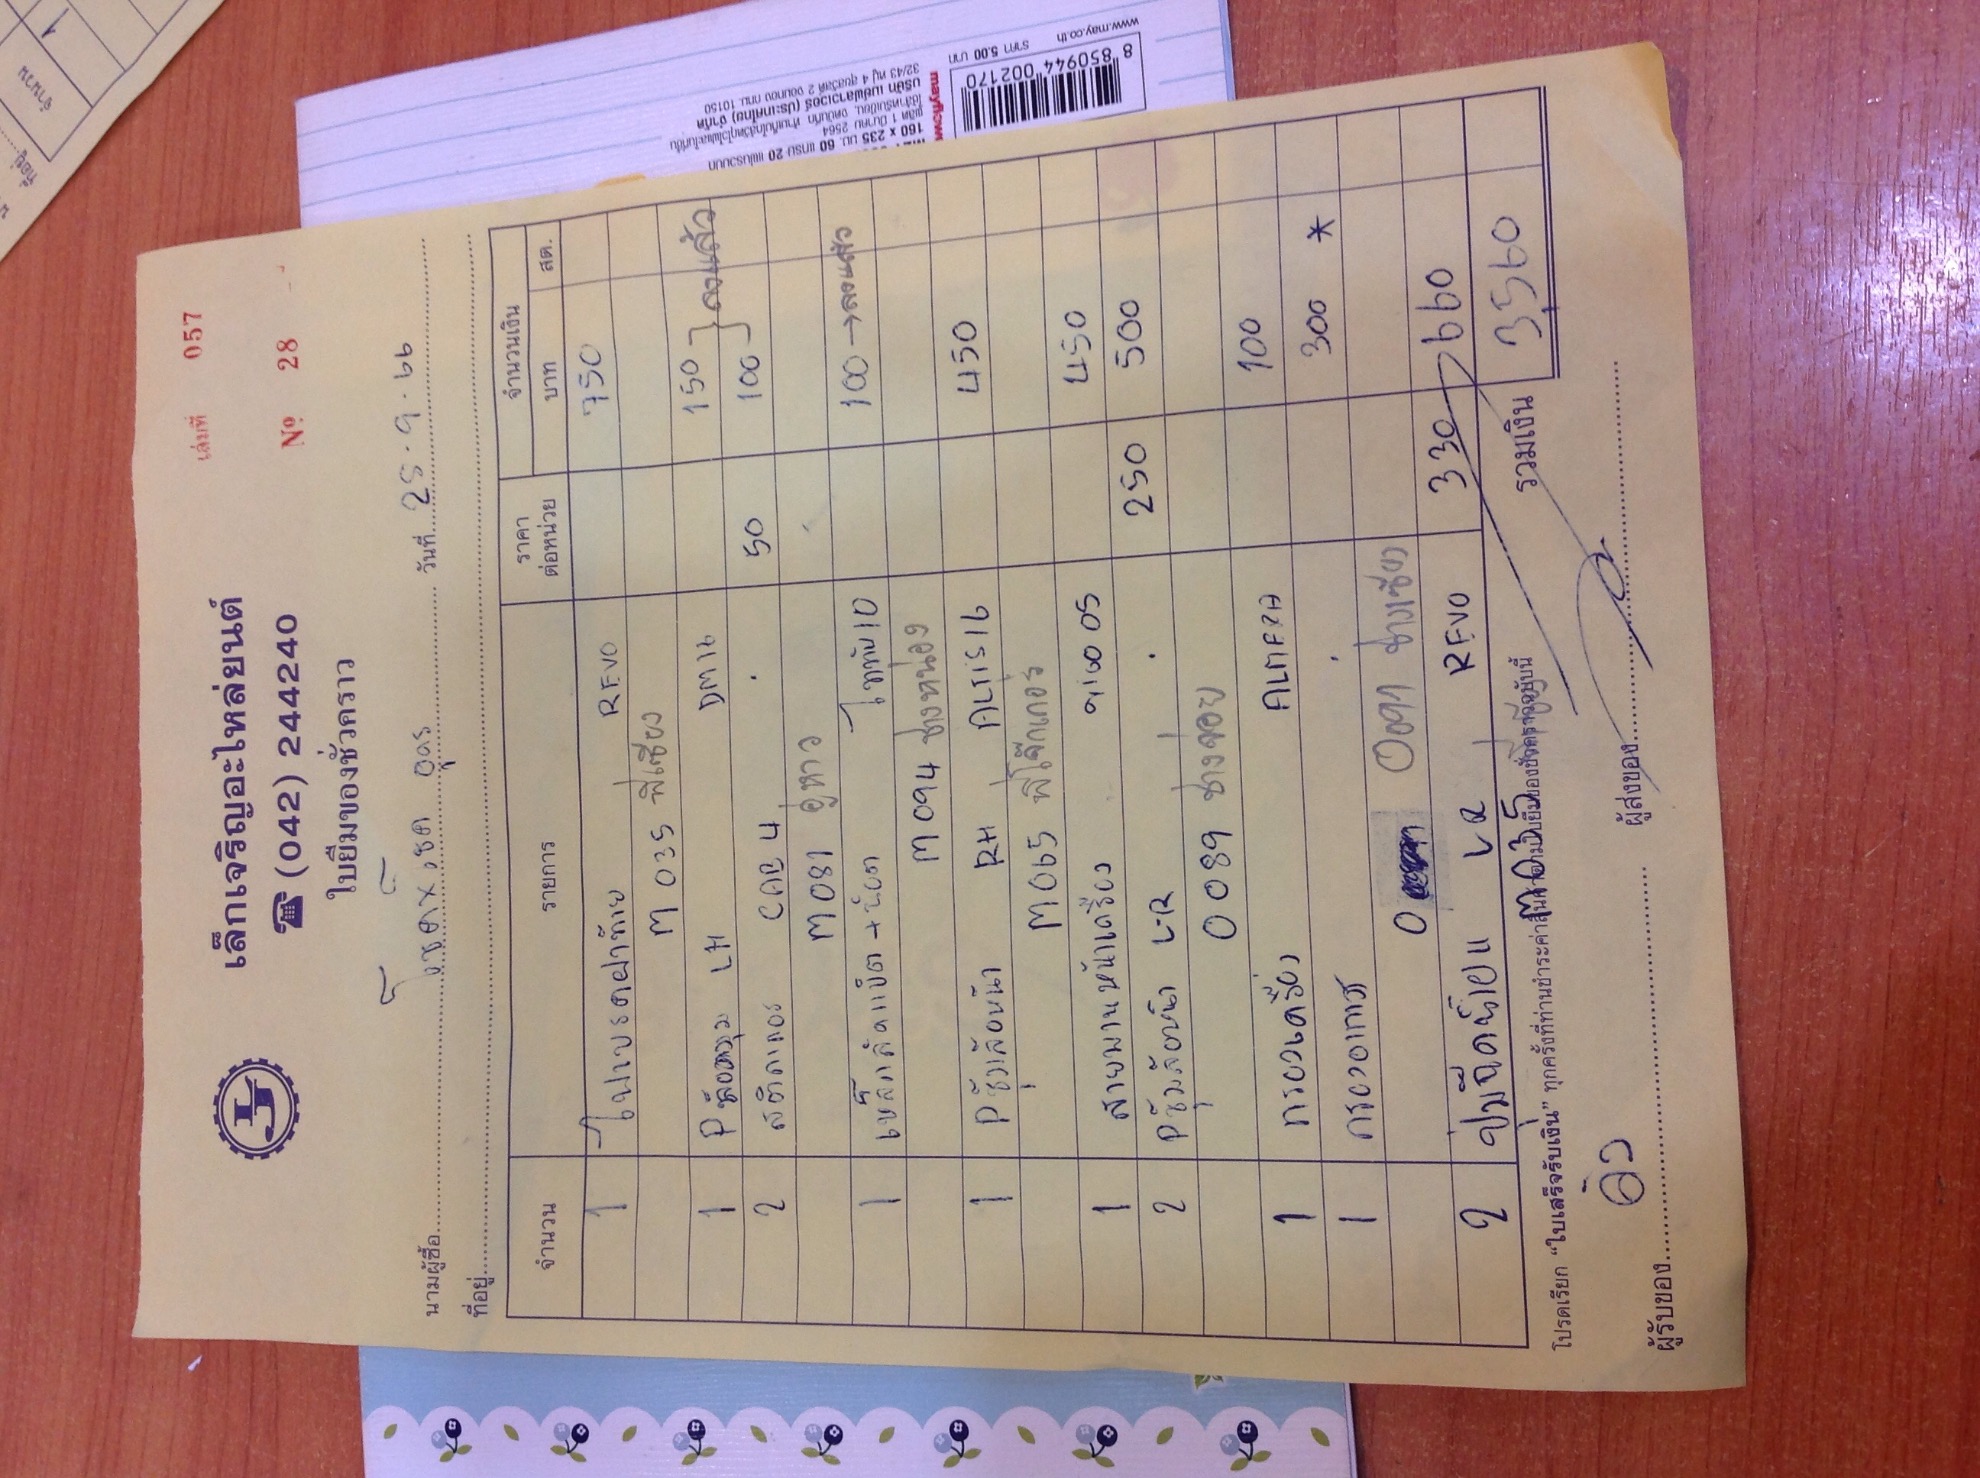 เล่มที่ 057
เล็กเจริญอะไหล่ยนต์
☎ (042) 244240
№ 28
ใบยืมของชั่วคราว
นามผู้ซื้อ โชคx,ชค อุดร วันที่ 25.9.66
ที่อยู่
จำนวน รายการ ราคาต่อหน่วย จำนวนเงิน บาท สต.
1 ไฟเบรคฝาท้าย REVO 750
M 035 พี่เซียง
1 LH DMAX 150 } ลงแล้ว
2 สติกเกอร์ CAB 4 50 100
M081 อู่หาว
1 เหล็กลัดแบ็ต + น๊อต ไททัน 10 100 → ลงแล้ว
M094 ช่างหน่อง
1 Pชัวล้อหน้า RH ALTIS 16 450
M065 พี่โจ๊กเกอร์
1 สายพานหน้าเครื่อง วีออส 05 450
2 Pชัวล้อหน้า LR 250 500
0089 ช่างจอย
1 กรองเครื่อง ALMERA 100
1 กรองอากาศ 300 *
0 ช่างเซียง
2 LR REVO 330 660
M035
โปรดเรียก “ใบเสร็จรับเงิน” ทุกครั้งที่ท่านชำระค่าสินค้าตามใบยืมของชั่วคราวฉบับนี้
รวมเงิน 3,560
ผู้รับของ ผู้ส่งของ
mayflower
160 x 235 มม. 60 แกรม 20 แผ่น
บริษัท เมย์ฟลาวเวอร์ (ประเทศไทย) จำกัด
32/43 หมู่ 4 สุขสวัสดิ์ 2 จอมทอง กทม. 10150
8 850944 002170
www.may.co.th ราคา 5.00 บาท
จำนวน
1
ที่อยู่